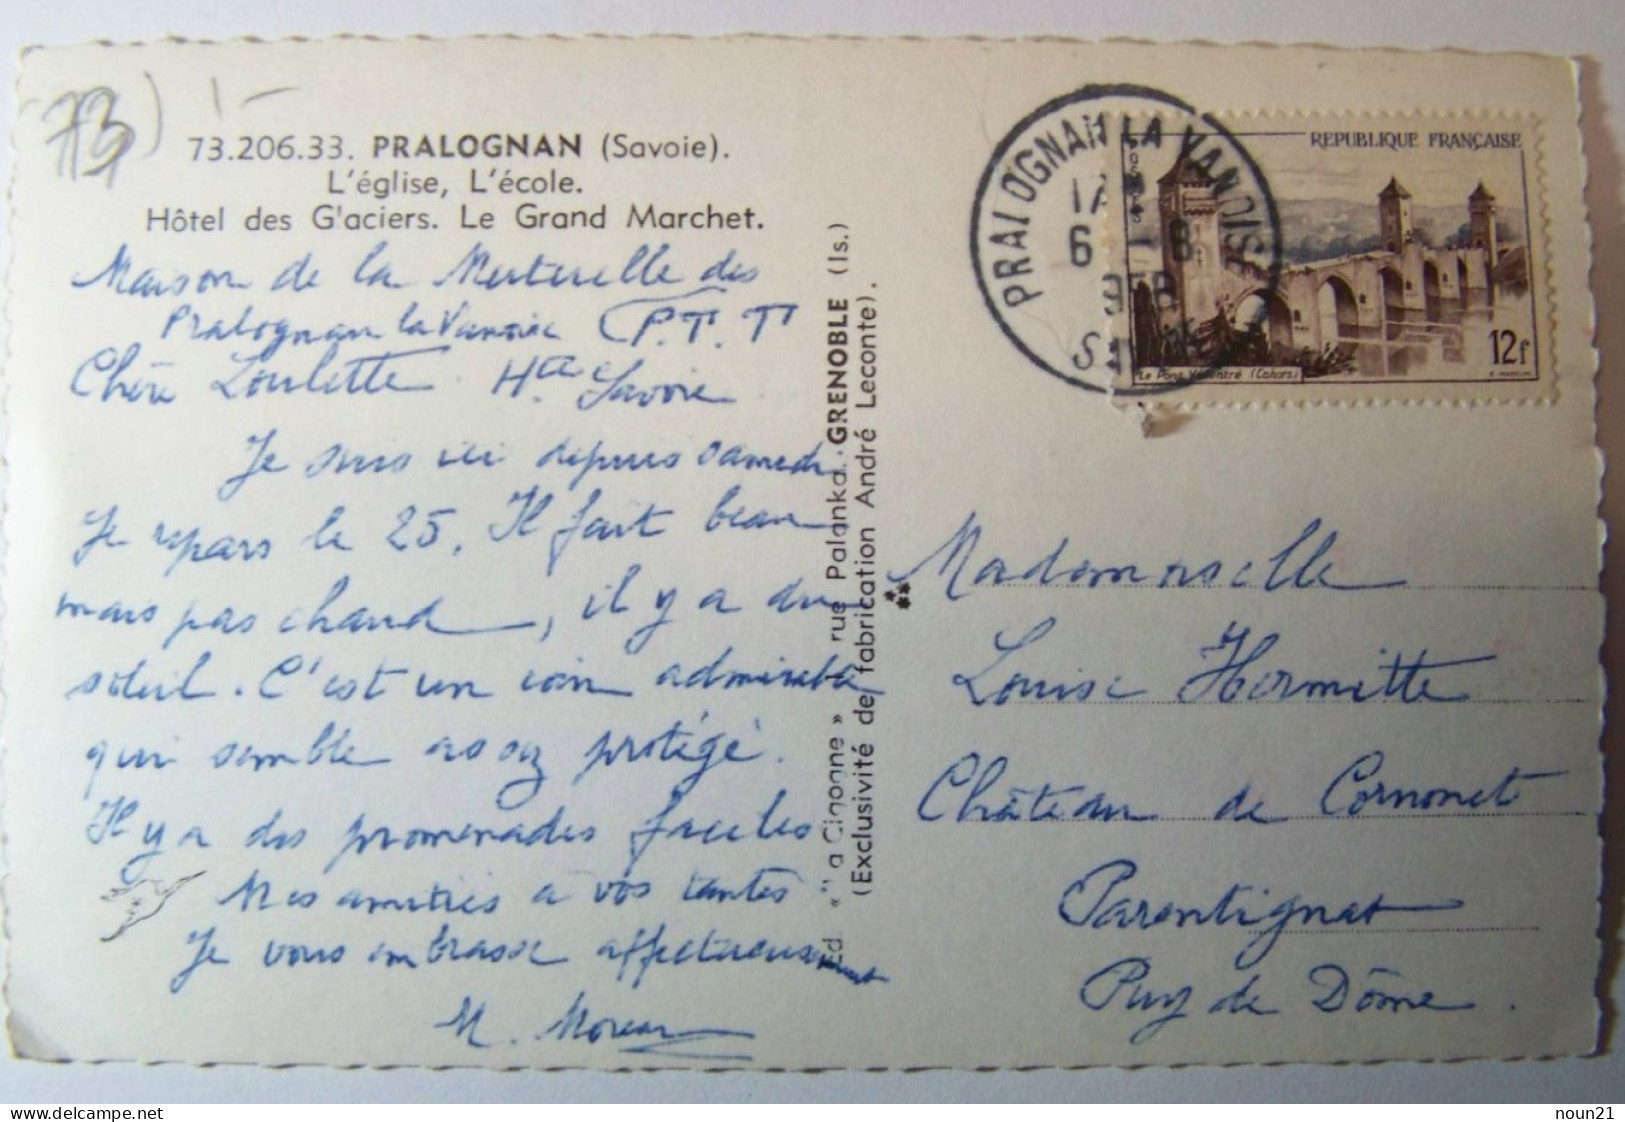 73) 1-
73.206.33. PRALOGNAN (Savoie).
L'église, L'école.
Hôtel des G'aciers. Le Grand Marchet.
Maison de la Mutuelle des
Pralognan la Vanoise P.T.T
Chère Loulette Hte Savoie
Je suis ici depuis samedi
Je repars le 25. Il fait beau
mais pas chaud, il y a du
soleil. C'est un coin admirable
qui semble assez protégé.
Il y a des promenades faciles
Mes amitiés à vos tantes
Je vous embrasse affectueusement
M. Moreau
Ed. "la Cigogne" 1 rue Palanka. GRENOBLE (Is.)
(Exclusivité de fabrication André Leconte).
PRALOGNAN LA VANOISE
6 - 8
SAVOIE
REPUBLIQUE FRANÇAISE
POSTES
12f
Le Pont Valentré (Cahors)
Mademoiselle
Louise Hermitte
Château de Cornonet
Parentignat
Puy de Dôme.
delcampe.net
noun21